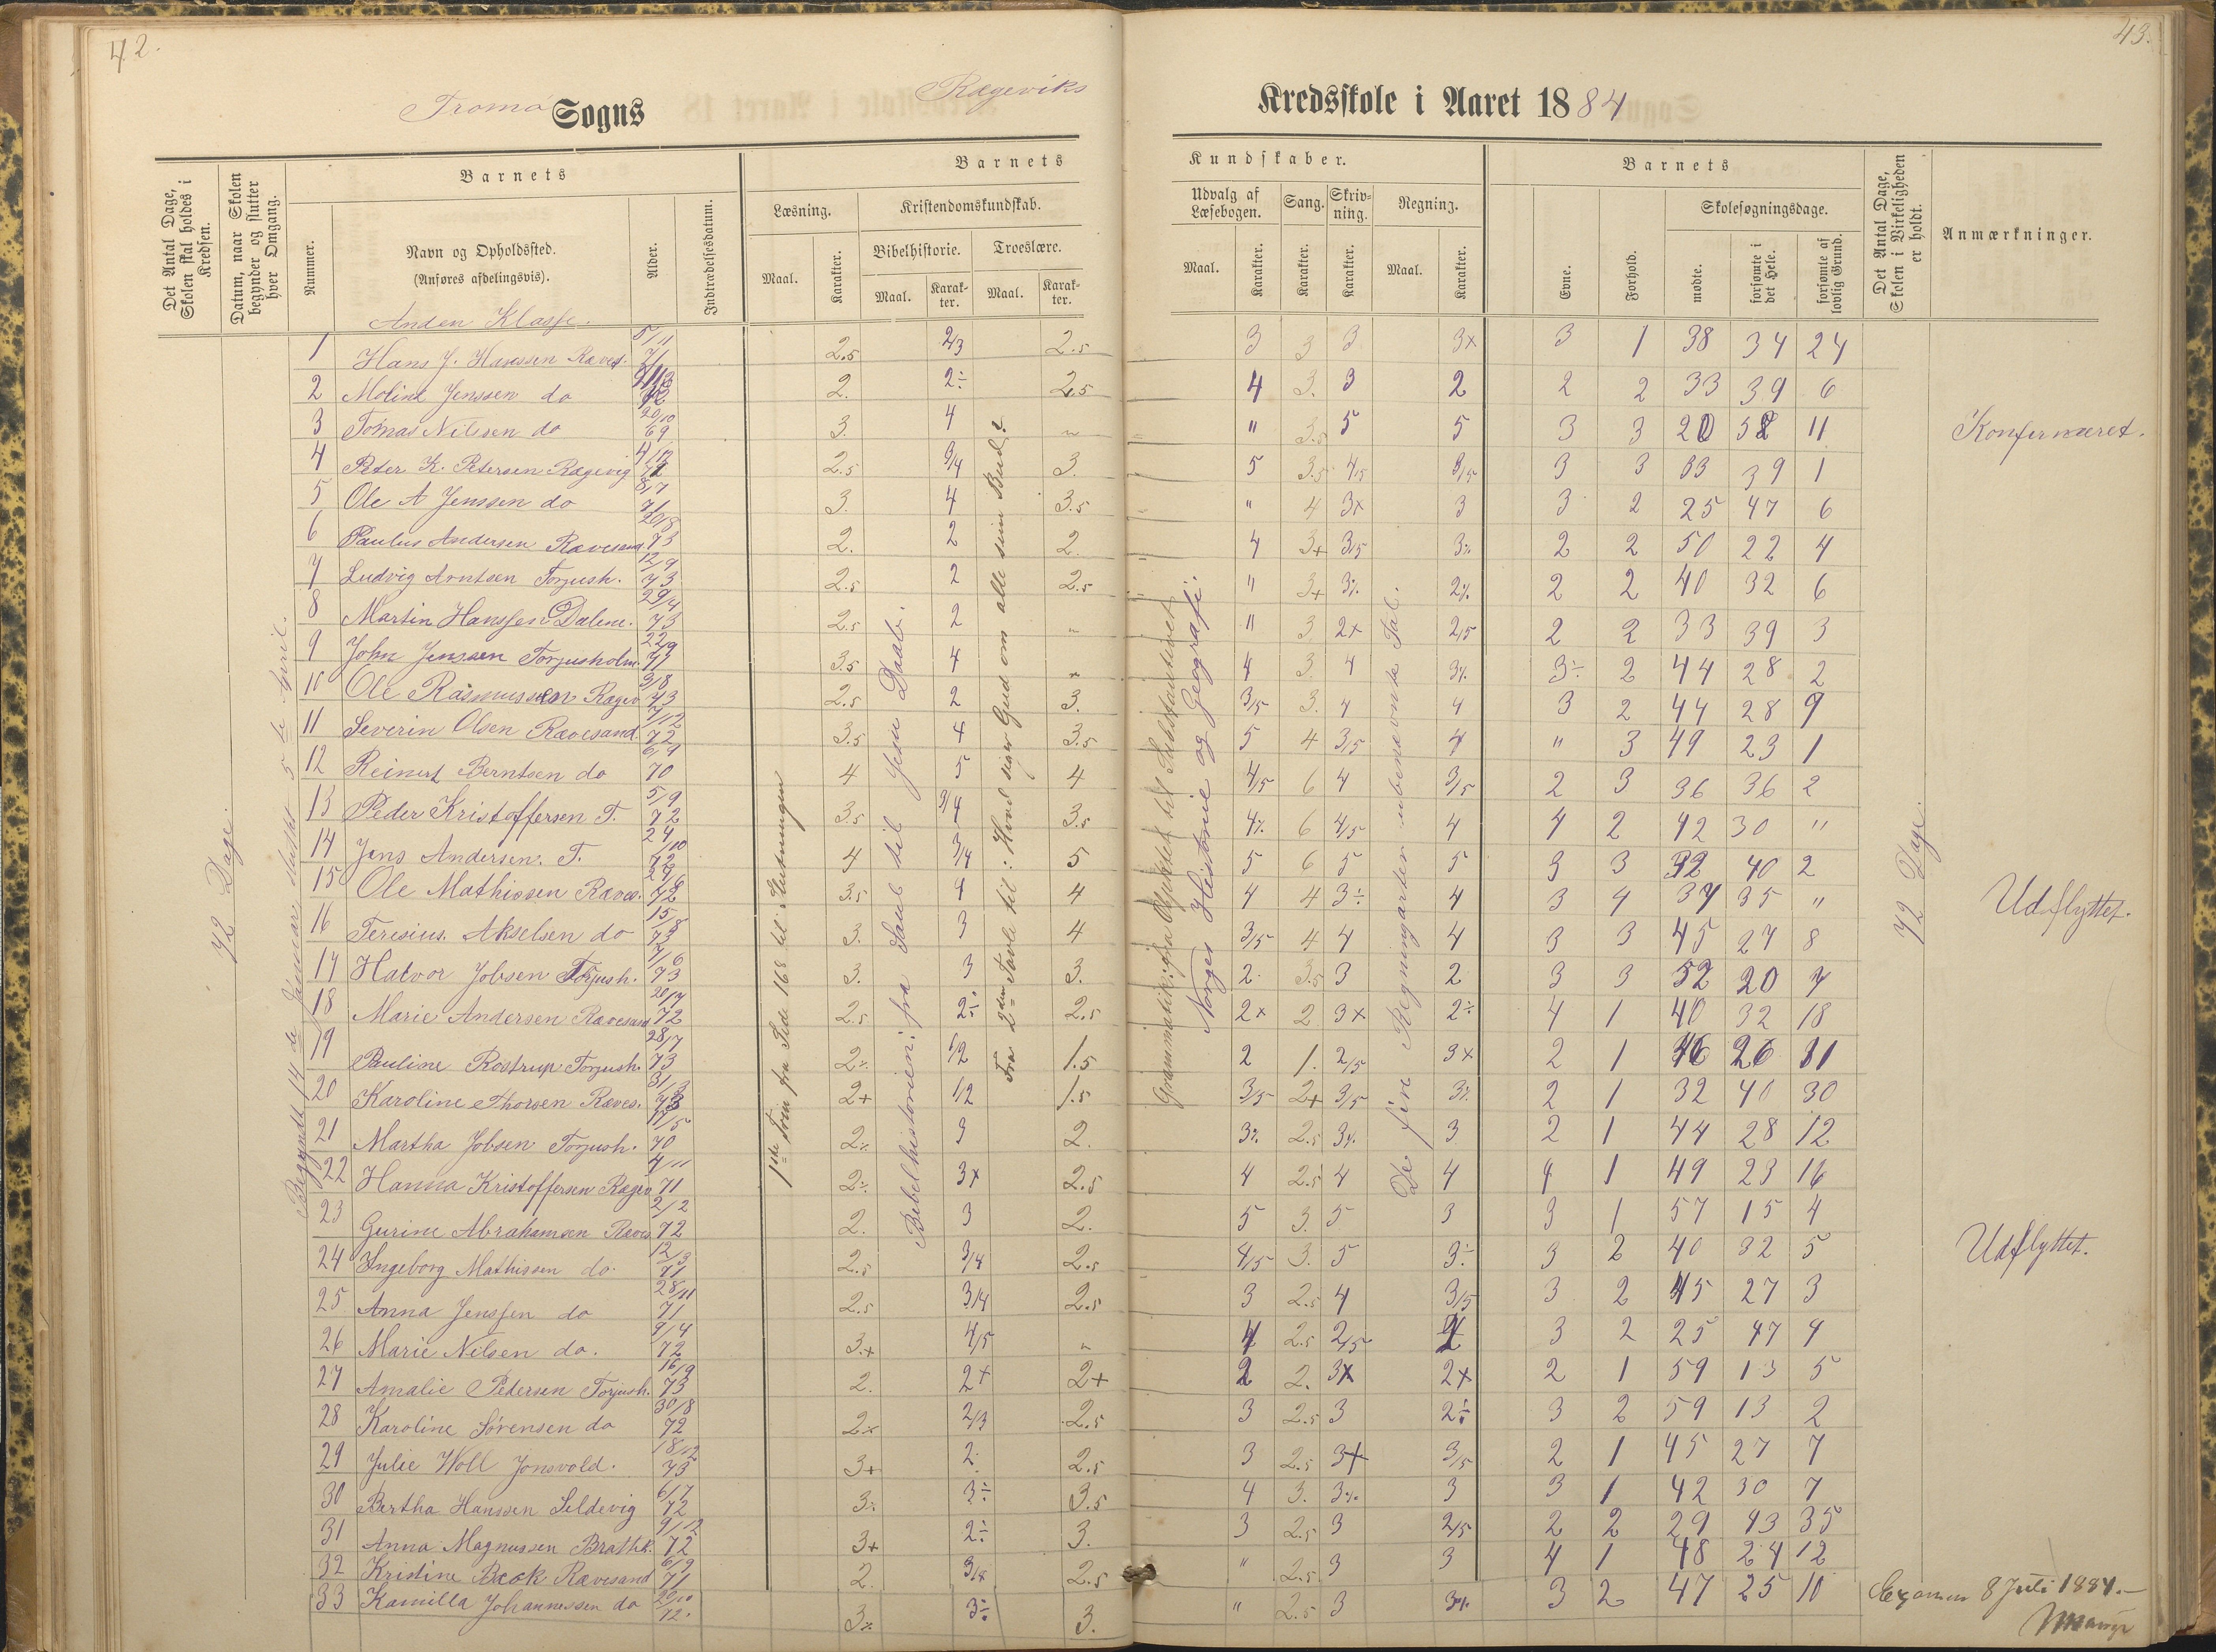 42.
Tromø Sogns
Rægeviks
Det Antal Dage, Skolen skal holdes i Kredsen.
Datum, naar Skolen begynder og slutter hver Omgang.
Nummer.
Barnets
Navn og Opholdssted.
(Anføres afdelingsvis).
Alder.
Indtrædelsesdatum.
Barnets
Læsning.
Kristendomskundskab.
Bibelhistorie.
Troeslære.
Maal.
Karakter.
Maal.
Karakter.
Maal.
Karakter.
Anden Klasse.
1 Hans J. Hanssen Raves. 5/11 71 2.5 2/3 2.5
2 Moline Jenssen do 2. 2÷ 2.5
3 Tomas Nilssen do 20/10 69 3. 4 "
4 Peter K. Petersen Rægevig 2.5 3/4 3.
5 Ole A Jenssen do 8/7 71 3. 4 3.5
6 Paulus Andersen Ravesand 20/8 73 2. 2 2.
7 Ludvig Arntsen Torjush. 12/9 73 2.5 2 2.5
8 Martin Hanssen Dalene. 29/4 73 2.5 2 "
9 John Jenssen Torjusholm. 22/9 71 3.5 4 "
10 Ole Rasmussen Rægev 3/8 73 2.5 2 3.
11 Severin Olsen Ravesand 7/12 72 3.5 4 3.5
12 Reinert Berntsen do 6/4 70 4 5 4
13 Peder Kristoffersen T. 5/9 72 3.5 3/4 3.5
14 Jens Andersen. T. 24/10 72 4 3/4 5
15 Ole Mathissen Raves. 29/6 72 3.5 4 4
16 Teresius. Akselsen do 15/8 73 3. 3 4
17 Halvor Jobsen Torjush. 7/6 73 3. 3 3.
18 Marie Andersen Ravesand 72 2.5 2÷ 2.5
19 Pauline Rostrup Torjush. 28/7 73 2% 1/2 1.5
20 Karoline Thorsen Raves. 31/3 73 2+ 1/2 1.5
21 Martha Jobsen Torjush. 17/5 70 2% 3 2.
22 Hanna Kristoffersen Rægev 4/11 71 2% 3x 2.5
23 Gurine Abrahamsen Raves 2/2 72 2. 3 2.
24 Ingeborg Mathissen do. 12/3 71 2.5 3/4 2.5
25. Anna Jenssen do 28/11 71 2.5 3/4 2.5
26 Marie Nilsen do. 9/4 72 3.+ 4/5 "
27 Amalie Pedersen Torjush. 16/9 73 2. 2+ 2+
28 Karoline Sørensen do 30/8 72 2x 2/3 2.5
29 Julie Woll Jonsvold. 18/12 73 3+ 2. 2.5
30 Bertha Hanssen Sildevig 6/7 72 3% 3÷ 3.5
31 Anna Magnussen Brathk. 9/12 72 3+ 2÷ 3.
32 Kristine Beck Ravesand 6/9 71 2. 2.5
33 Kamilla Johannessen do 20/10 72. 3% 3÷ 3.
72 Dage.
Begyndt 14de Januar sluttet 5te April.
1ste Trin fra Side 168 til Slutningen
Bibelhistorien: fra Saul til Jesu Daab.
Fra 2den Tavle til: Hvad siger Gud om alle sine Bud?
43.
Kredsskole i Aaret 1884
Kundskaber.
Udvalg af Læsebogen.
Sang.
Skrivning.
Regning.
Maal.
Karakter.
Karakter.
Karakter.
Maal.
Karakter.
Barnets
Evne.
Forhold.
Skolesøgningsdage.
mødte.
forsømte i det Hele.
forsømte af lovlig Grund.
Det Antal Dage, Skolen i Virkeligheden er holdt.
Anmærkninger.
3 3 3 3x 3 1 38 34 24
4 3. 3 2 2 2 33 39 6
" 3.5 5 5 3 3 20 52 11 Konfermeret.
5 3.5 4/5 3/5 3 3 33 39 1
" 4 3x 3 3 2 25 47 6
4 3+ 3/5 3% 2 2 50 22 4
" 3+ 3% 2% 2 2 40 32 6
" 3 2x 2/5 2 2 33 39 3
4 3. 4 3% 3÷ 2 44 28 2
3/5 3. 4 4 3 2 44 28 9
5 4 3/5 4 " 3 49 23 1
4/5 6 4 3/5 2 3 36 36 2
4% 6 4/5 4 4 2 42 30 "
5 6 5 5 3 3 32 40 2
4 4 3÷ 4 3 4 37 35 " Udflyttet.
3/5 4 4 4 3 3 45 27 8
2. 3.5 3 2 3 3 52 20 7
2x 2 3x 2÷ 4 1 40 32 18
2 1. 2/5 3x 2 1 46 26
3/5 2+ 3/5 3% 2 1 32 40 30
3% 2.5 3% 3 2 1 44 28 12
4 2.5 4 4 4 1 49 23 16
5 3. 5 3 3 1 57 15 4
4/5 3. 5 3÷ 3 2 40 32 5 Udflyttet.
3 2.5 4 3/5 3 2 45 27 3
4 2.5 2/5 3 2 25 47 4
2 2. 3x 2x 2 1 59 13 5
3 2.5 3 2÷ 3 2 59 13 2
3 2.5 3+ 3/5 2 1 45 27 7
4 3. 3% 3 3 1 42 30 7
3 2.5 3 2/5 2 2 29 43 35
" 2.5 3 3 4 1 48 24 12
" 2.5 3 3% 3 2 47 25 10
Norges Historie og Geografi.
De fire Regningsarter ubenævnte Tal.
72 Dage.
Examen 8 Juli 1884.—